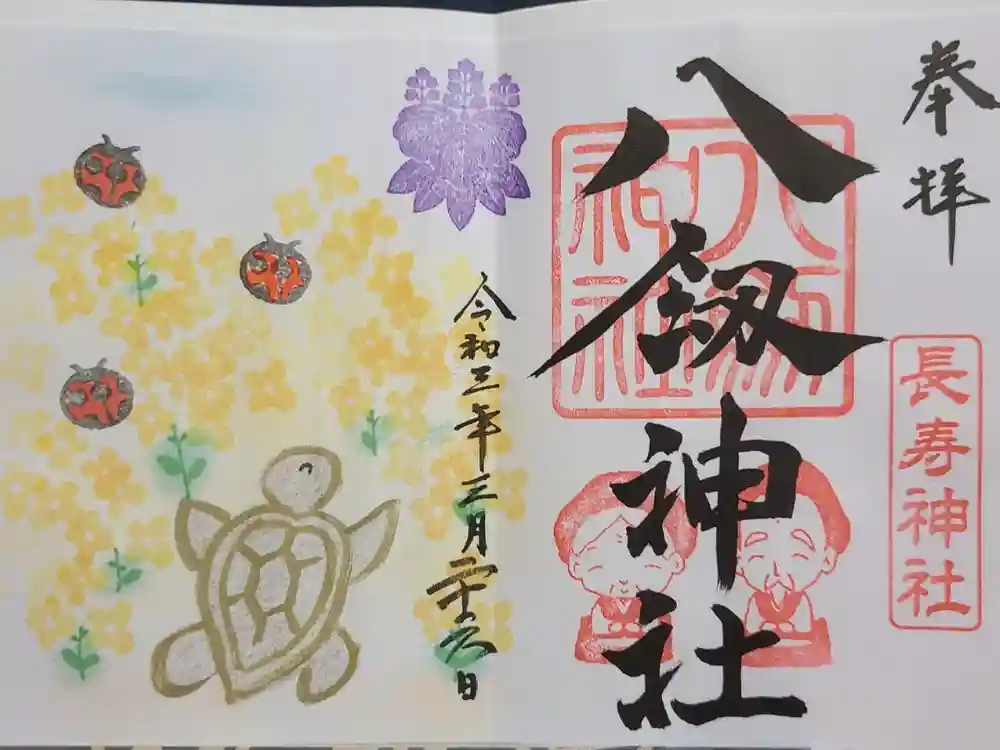 奉拝
長寿神社
八劔神社
八劔神社
令和三年三月二十六日